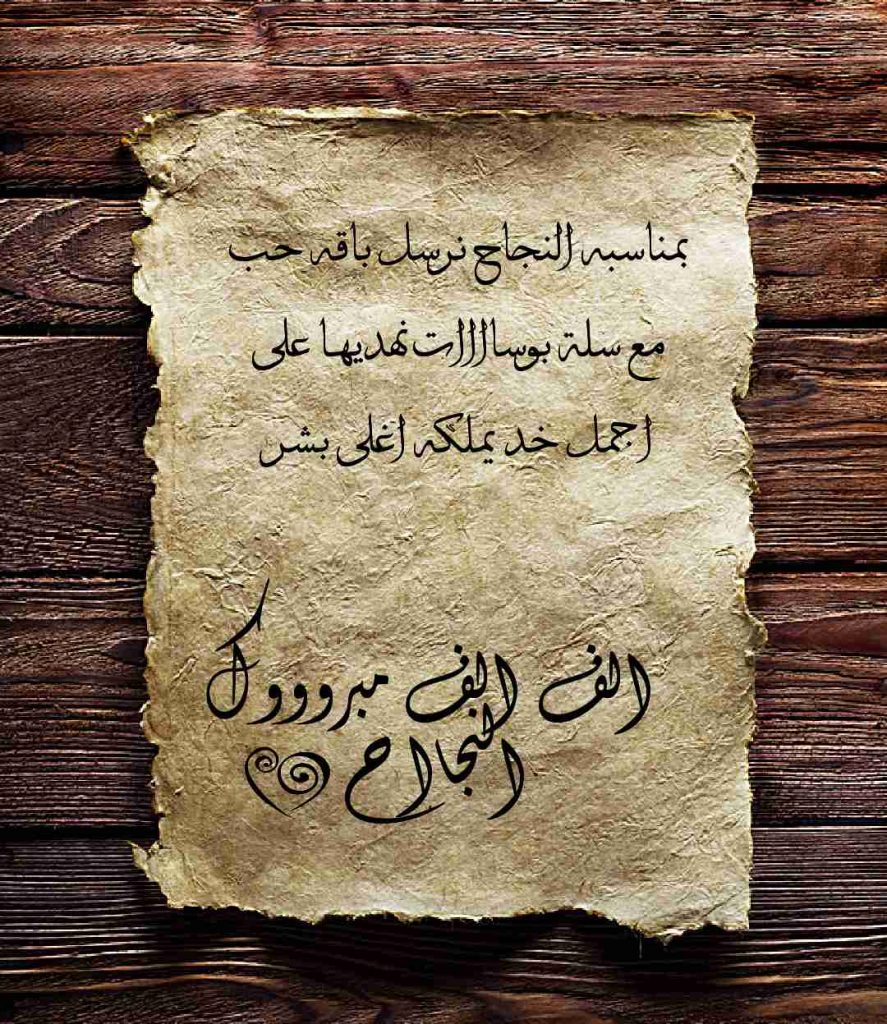 بمناسبه النجاح نرسل باقه حب
مع سلة بوساااات نهديها على
اجمل خد يملكه اغلى بشر
الف الف مبروووك
النجااح